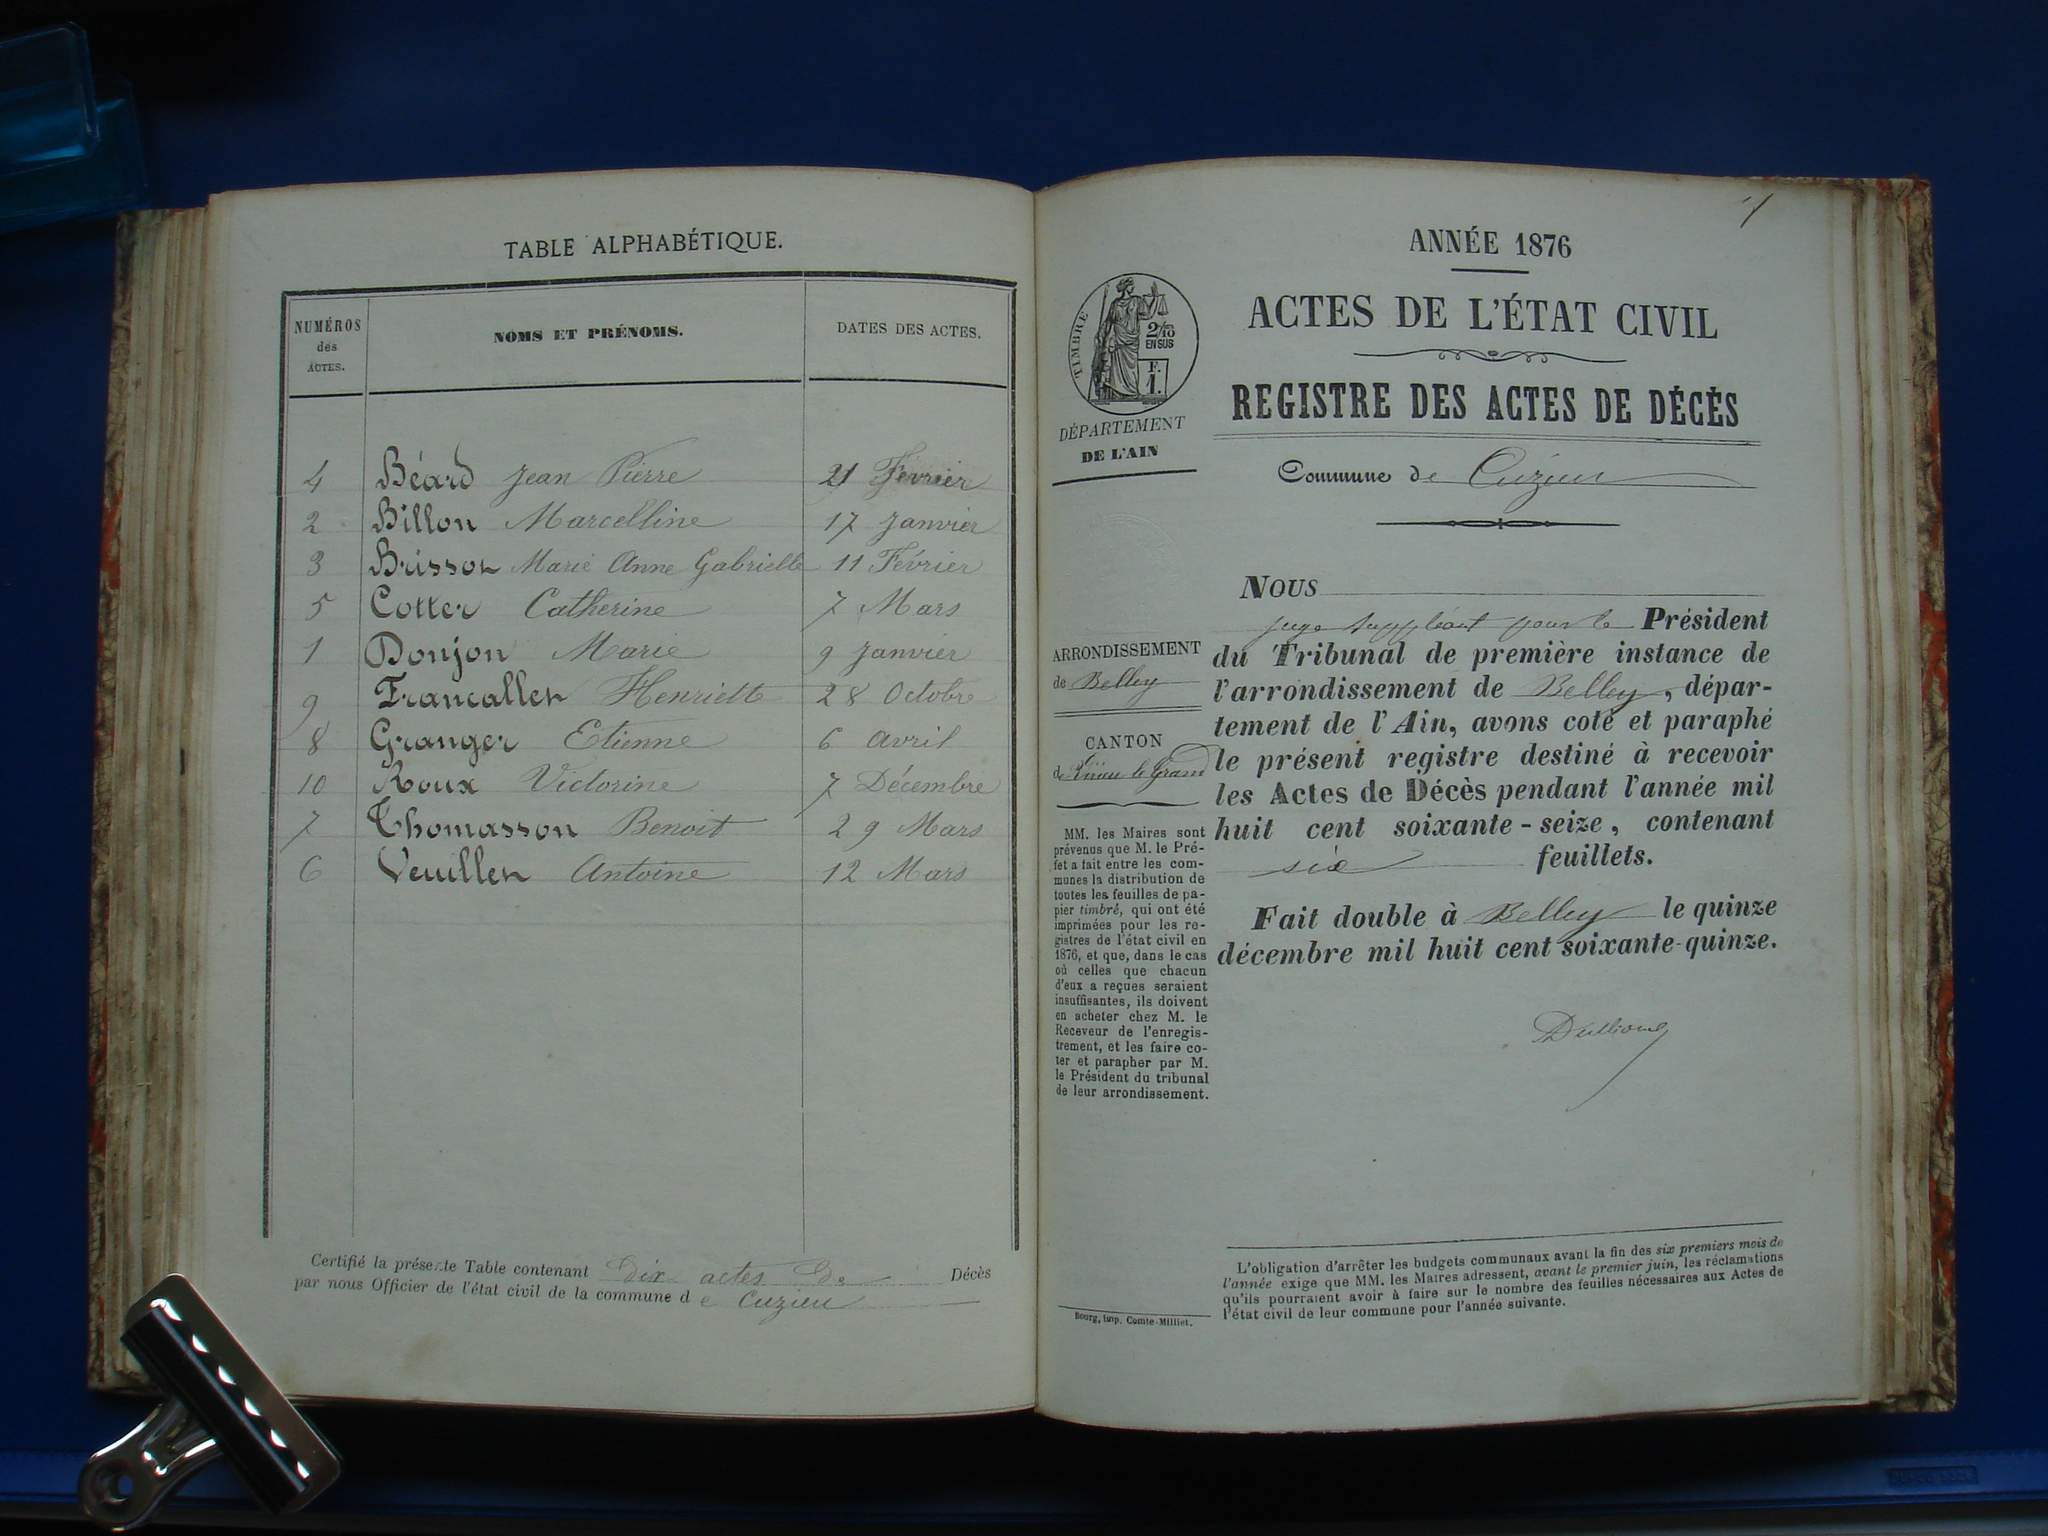 TABLE ALPHABÉTIQUE.
NUMÉROS
des
ACTES.
NOMS ET PRÉNOMS.
DATES DES ACTES.
4 Béard Jean Pierre 21 Février
2 Billon Marcelline 17 Janvier
3 Brisson Marie Anne Gabrielle 11 Février
5 Cotter Catherine 7 Mars
1 Donjon Marie 9 Janvier
9 Francallet Henriette 28 Octobre
8 Granger Etienne 6 Avril
10 Roux Victorine 7 Décembre
7 Thomasson Benoit 29 Mars
6 Veuillet Antoine 12 Mars
Certifié la présente Table contenant dix actes de Décès
par nous Officier de l'état civil de la commune de Cuzieu
1
ANNÉE 1876
ACTES DE L'ÉTAT CIVIL
REGISTRE DES ACTES DE DÉCÈS
Commune de Cuzieu
TIMBRE
2/10
EN SUS
F.
1.
DÉPARTEMENT
DE L'AIN
ARRONDISSEMENT
de Belley
CANTON
de Virieu le Grand
MM. les Maires sont
prévenus que M. le Pré-
fet a fait entre les com-
munes la distribution de
toutes les feuilles de pa-
pier timbré, qui ont été
imprimées pour les re-
gistres de l'état civil en
1876, et que, dans le cas
où celles que chacun
d'eux a reçues seraient
insuffisantes, ils doivent
en acheter chez M. le
Receveur de l'enregis-
trement, et les faire co-
ter et parapher par M.
le Président du tribunal
de leur arrondissement.
Bourg, imp. Comte-Milliet.
NOUS
juge suppléant pour le Président
du Tribunal de première instance de
l'arrondissement de Belley, dépar-
tement de l'Ain, avons coté et paraphé
le présent registre destiné à recevoir
les Actes de Décès pendant l'année mil
huit cent soixante-seize, contenant
six feuillets.
Fait double à Belley le quinze
décembre mil huit cent soixante-quinze.
L'obligation d'arrêter les budgets communaux avant la fin des six premiers mois de
l'année exige que MM. les Maires adressent, avant le premier juin, les réclamations
qu'ils pourraient avoir à faire sur le nombre des feuilles nécessaires aux Actes de
l'état civil de leur commune pour l'année suivante.